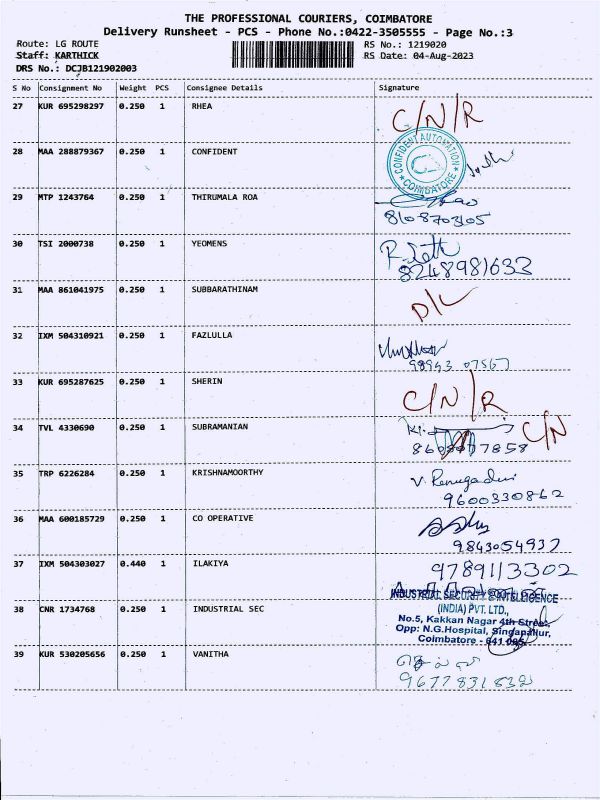 THE PROFESSIONAL COURIERS, COIMBATORE
Delivery Runsheet - PCS - Phone No.:0422-3505555 - Page No.:3
Route: LG ROUTE RS No.: 1219020
Staff: KARTHICK RS Date: 04-Aug-2023
DRS No.: DCJB121902003
S No Consignment No Weight PCS Consignee Details Signature
27 KUR 695298297 0.250 1 RHEA C/N/R
28 MAA 288879367 0.250 1 CONFIDENT CONFIDENT AUTOMATION COIMBATORE
29 MTP 1243764 0.250 1 THIRUMALA ROA
8108703105
30 TSI 2000738 0.250 1 YEOMENS
8248981633
31 MAA 861041975 0.250 1 SUBBARATHINAM D/L
32 IXM 504310921 0.250 1 FAZLULLA
98943 07567
33 KUR 695287625 0.250 1 SHERIN C/N/R
34 TVL 4330690 0.250 1 SUBRAMANIAN C/N
35 TRP 6226284 0.250 1 KRISHNAMOORTHY V. Renugadevi
9600330862
36 MAA 600185729 0.250 1 CO OPERATIVE
9843054937
37 IXM 504303027 0.440 1 ILAKIYA 9789113302
INDUSTRIAL SECURITY & INTELLIGENCE
38 CNR 1734768 0.250 1 INDUSTRIAL SEC (INDIA) PVT. LTD.,
No.5, Kakkan Nagar 4th Street,
Opp: N.G.Hospital, Singanallur,
Coimbatore - 641 005.
39 KUR 530205656 0.250 1 VANITHA
9677831832